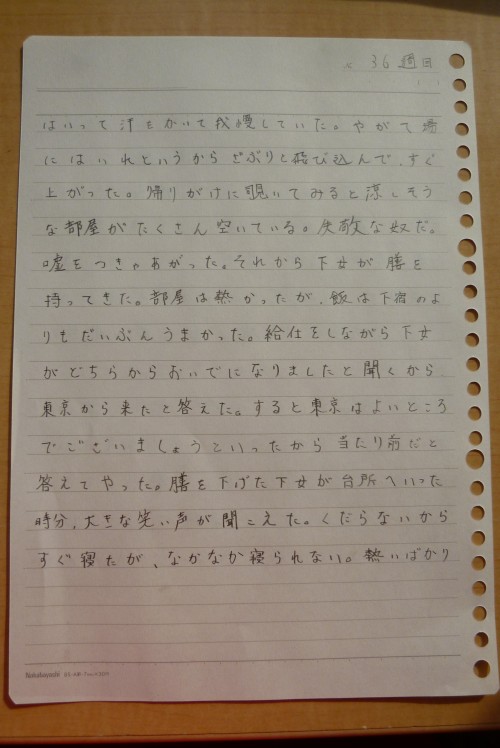 36週目
はいって汗をかいて我慢していた。やがて湯
にはいれというからざぶりと飛び込んで、すぐ
上がった。帰りがけに覗いてみると涼しそう
な部屋がたくさん空いている。失敬な奴だ。
嘘をつきゃあがった。それから下女が膳を
持ってきた。部屋は熱かったが、飯は下宿のよ
りもだいぶんうまかった。給仕をしながら下女
がどちらからおいでになりましたと聞くから、
東京から来たと答えた。すると東京はよいところ
でございましょうといったから当たり前だと
答えてやった。膳を下げた下女が台所へいった
時分、大きな笑い声が聞こえた。くだらないから
すぐ寝たが、なかなか寝られない。熱いばかり
Nakabayashi